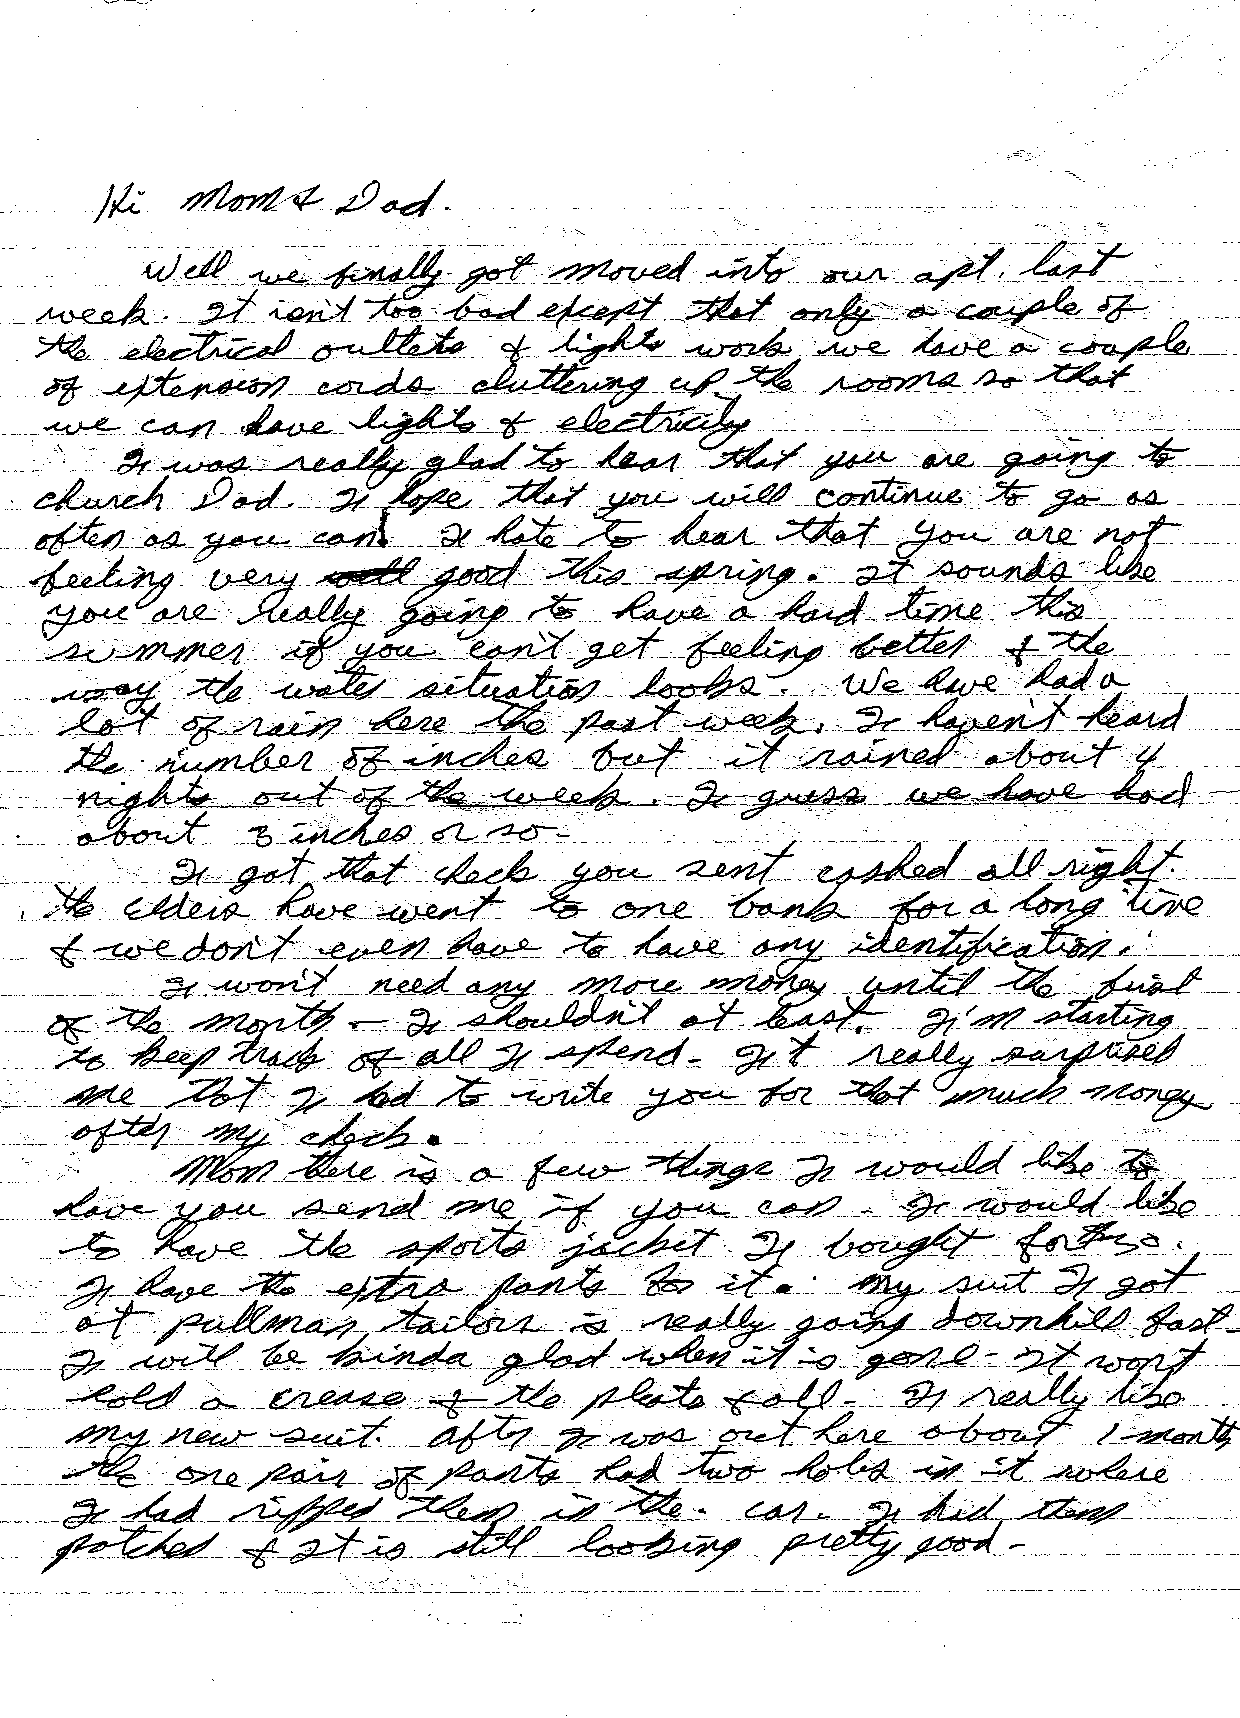 Hi Mom & Dad.
Well we finally got moved into our apt. last
week. It isn't too bad except that only a couple of
the electrical outlets & lights work, we have a couple
of extension cords cluttering up the rooms so that
we can have lights & electricity
I was really glad to hear that you are going to
church Dad. I hope that you will continue to go as
often as you can! I hate to hear that you are not
feeling very good this spring. It sounds like
you are really going to have a hard time this
summer if you can't get feeling better & the
way the water situation looks. We have had a
lot of rain here the past week. I haven't heard
the number of inches but it rained about 4
nights out of the week. I guess we have had
about 3 inches or so-
I got that check you sent cashed all right.
The Elders have went to one bank for a long time
& we don't even have to have any identification.
I won't need any more money until the first
of the month - I shouldn't at least. I'm starting
to keep track of all I spend- It really surprised
me that I had to write you for that much money
after my check.
Mom there is a few things I would like to
have you send me if you can. I would like
to have the sports jacket I bought for
I have the extra pants to it. My suit I got
at pullman tailors is really going downhill fast-
I will be kinda glad when it is gone- It wont
hold a crease & the pleats & all- I really like
my new suit. After I was out here about 1 month
the one pair of pants had two holes in it where
I had ripped them in the car. I had them
patched & It is still looking pretty good-